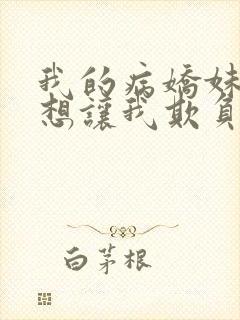 我的病嬌妹
想讓我欺負
白茅根